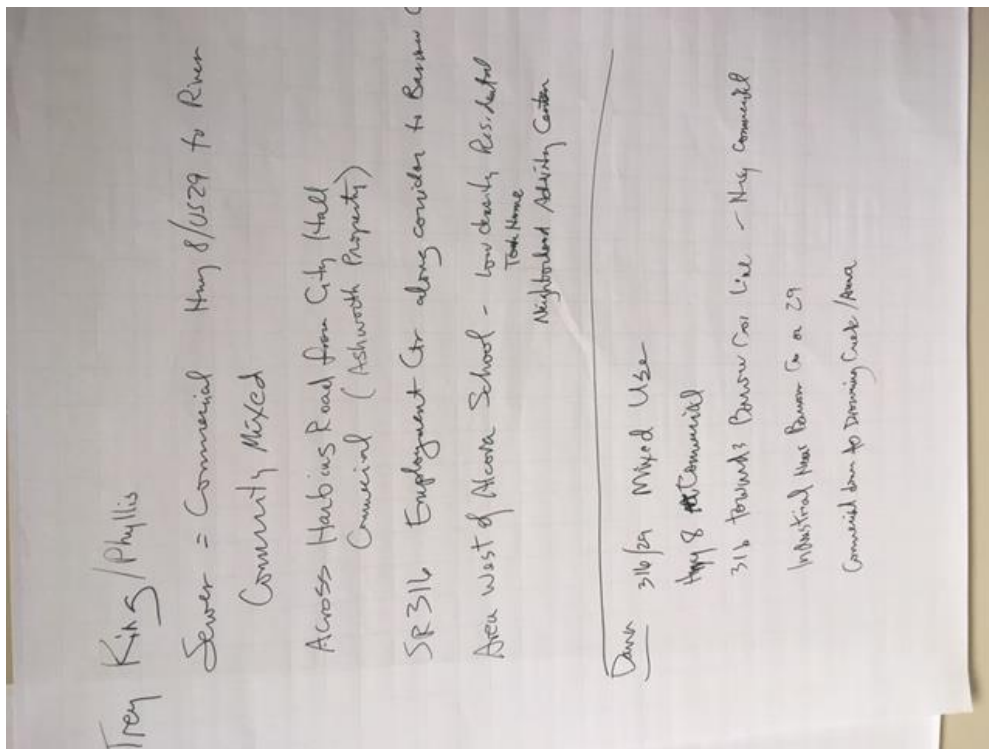 Trey King/Phyllis
Sewer = Commercial Hwy 8/US29 to River
Community Mixed
Across Harbins Road from City Hall
Commercial (Ashworth Property)
SR316 Employment Ctr along corridor to Barrow C
Area West of Alcova School - Low density Residential
Town Home
Neighborhood Activity Center
316/29 Mixed Use
Hwy 8 Commercial
316 towards Barrow Co Line - Commercial
Industrial Near Barrow Co on 29
Commercial down to Drowning Creek/Area